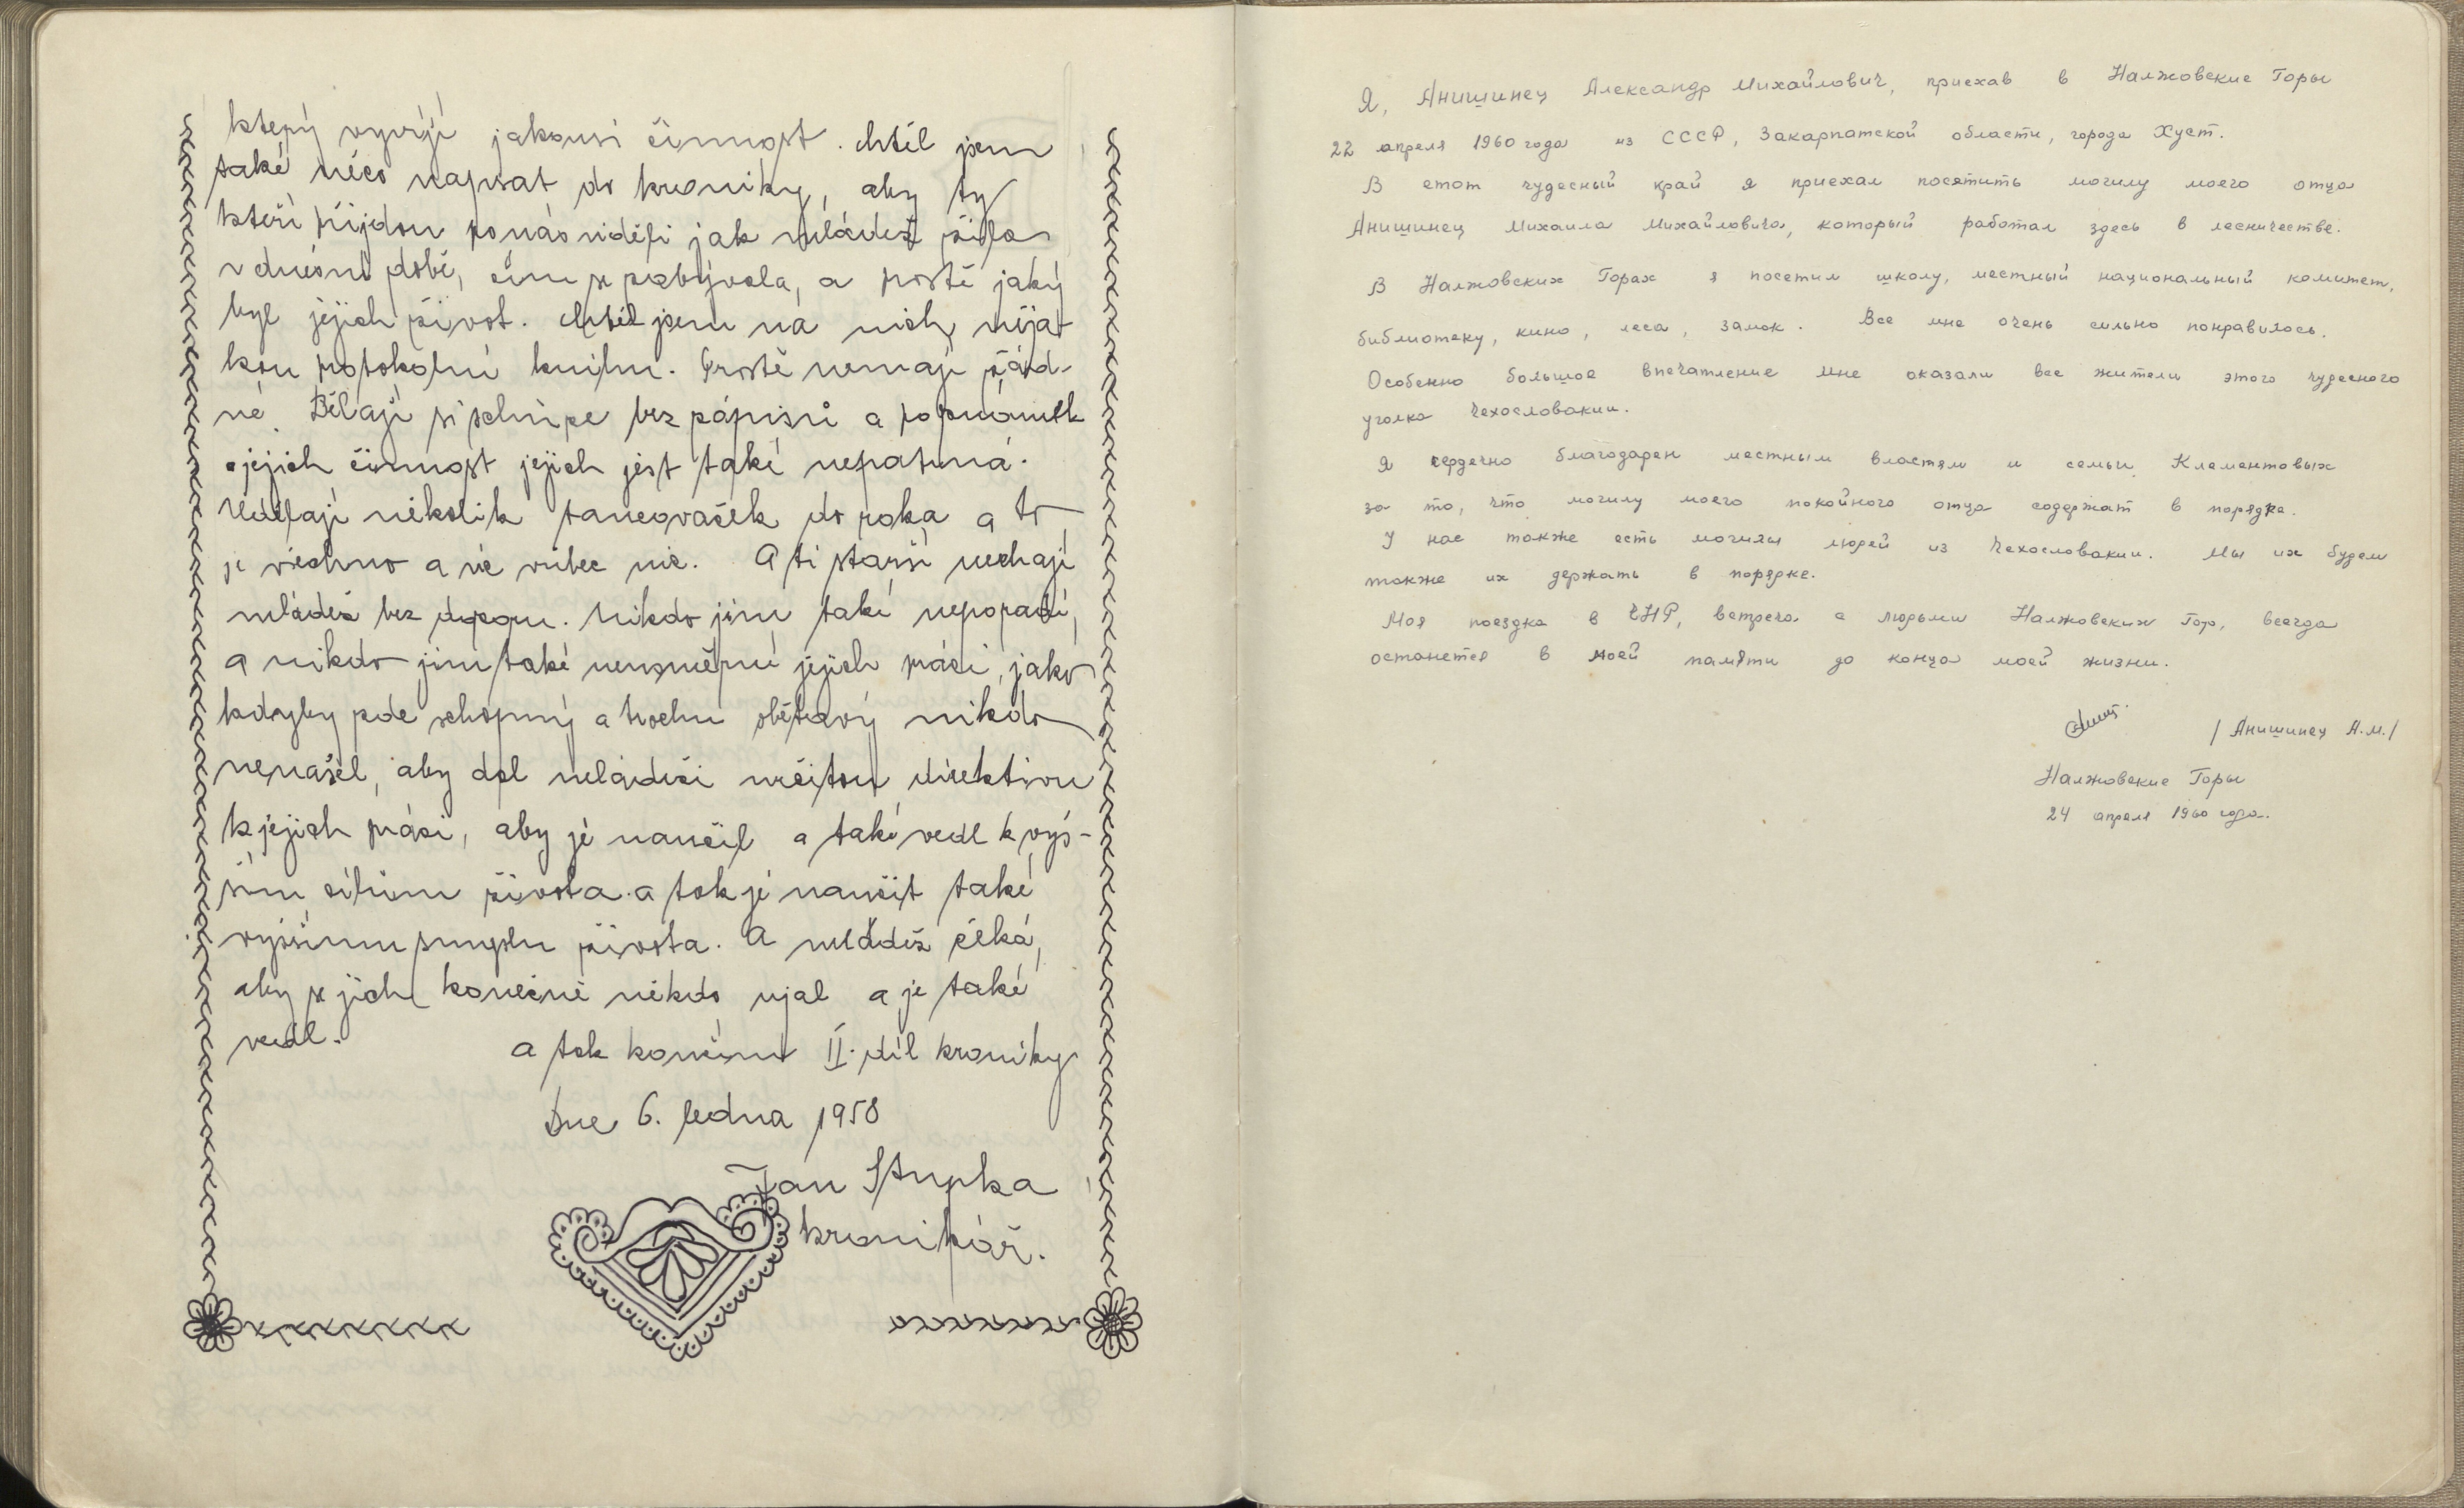 který vyvíjí jakousi činnost. chtěl jsem
také něco napsat do kroniky, aby ty
kteří přijdou po nás viděli jak mládež žila
v dnešní době, čím se zabývala, a prostě jaký
byl jejich život. chtěl jsem na nich něja-
kou protokolní knihu. Prostě nemají žád-
né. Dělají si schůze bez zápisů a poznámek
a jejich činnost jejich jest také nepatrná.
Udělají několik tanovaček do roka a to
je všechno a víc vůbec nic. A ti starší nechají
mládež bez dozoru. Nikdo jim také neporadí,
a nikdo jim také neusměrní jejich práci, jako
kdyby zde schopný a trochu obětavý nikdo
nenašel, aby dal mládeži určitou direktivu
k jejich práci, aby je naučil a také vedl k vyš-
ším cílům života. a tak je naučit také
vyššímu smyslu života. A mládež čeká,
aby se jich konečně někdo ujal a je také
vedl.
a tak končím II. díl kroniky
Dne 6. ledna 1958
Jan Stupka
kronikář.
Я, Анишинец Александр Михайлович, приехав в Налжовские Горы
22 апреля 1960 года из СССР, Закарпатской области, города Хуст.
В етот чудесный край я приехал посятить могилу моего отца
Анишинец Михаила Михайловича, который работал здесь в лесничестве.
В Налжовских Горах я посетил школу, местный национальный комитет,
библиотеку, кино, леса, замок. Все мне очень сильно понравилось.
Особенно большое впечатление мне оказали все жители этого чудесного
уголка Чехословакии.
Я сердечно благодарен местным властям и семьи Клементовых
за то, что могилу моего покойного отца содержат в порядке.
У нас также есть могилы людей из Чехословакии. Мы их будем
также их держать в порядке.
Моя поездка в ЧНР, встреча с людьми Налжовских Гор, всегда
останется в моей памяти до конца моей жизни.
/ Анишинец А.М. /
Налжовские Горы
24 апреля 1960 года.